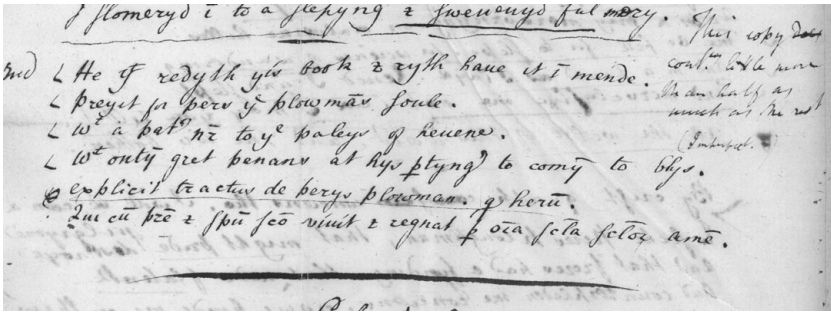 I slomeryd ī to a slepyng & swevenyd ful mery.
End
He yͭ redyth yis book & ryth have it ī mende.
Preyit for pers yͤ plowmās soule.
Wͭ a patͬ nr̄ to yͤ paleys of hevene.
Wͭ outȳ gret penans at hys ptyng to comȳ to blys.
explicit tractus de perys plowman. q herū.
Qui cū prē & spū sēo vivit & regnat p oīa scła scłoꝝ amē.
This copy does
contⁿ little more
than half as
much as the rest
(Imperfect.)